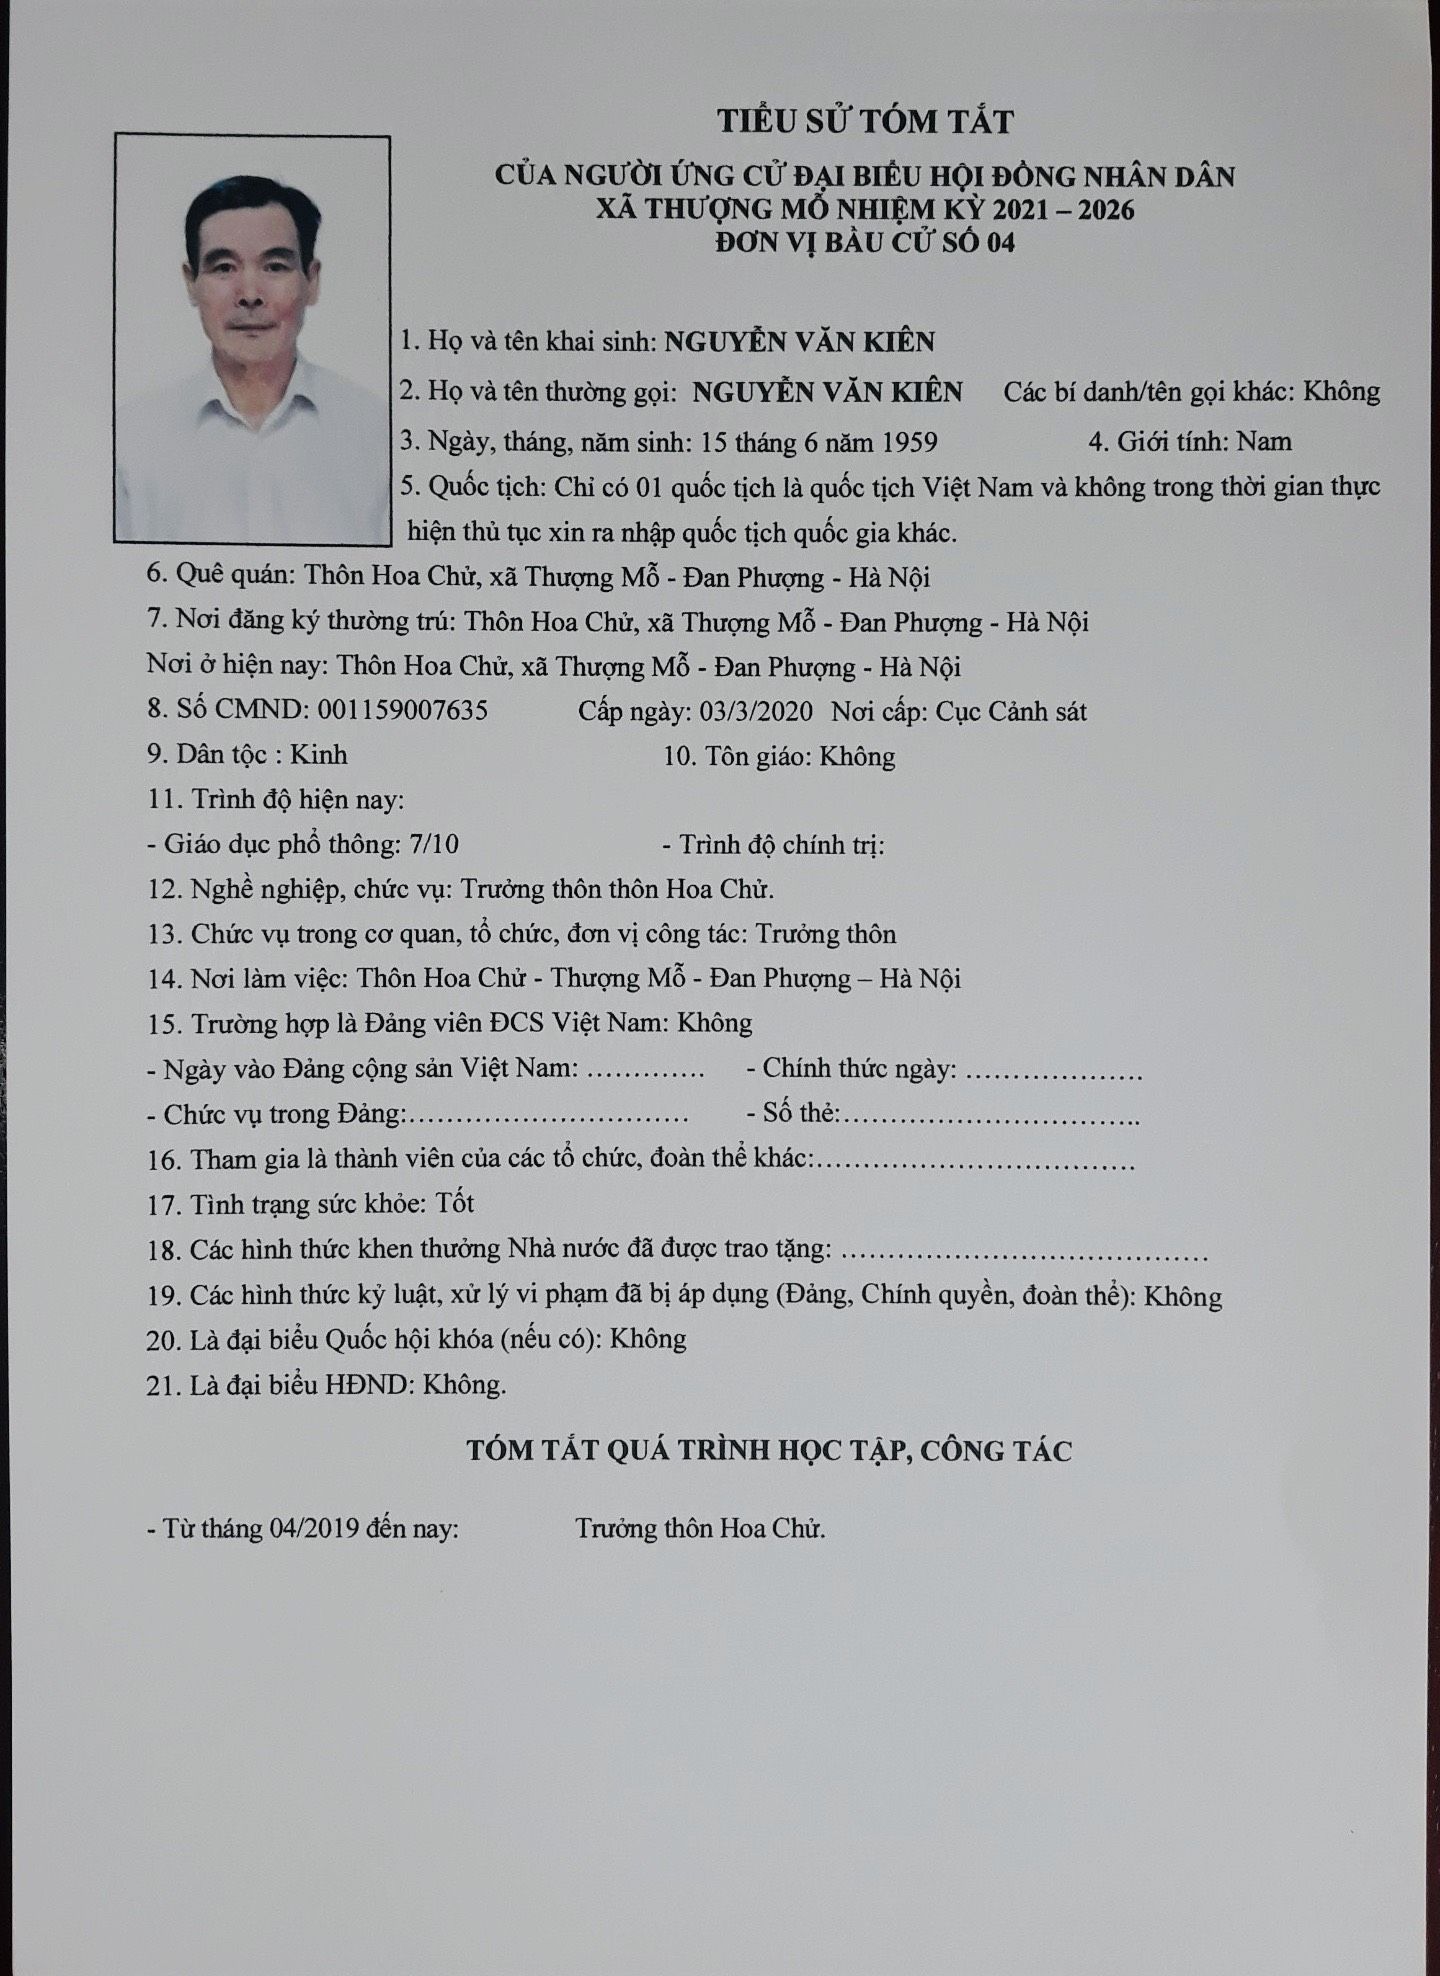 TIỂU SỬ TÓM TẮT
CỦA NGƯỜI ỨNG CỬ ĐẠI BIỂU HỘI ĐỒNG NHÂN DÂN
XÃ THƯỢNG MỖ NHIỆM KỲ 2021 – 2026
ĐƠN VỊ BẦU CỬ SỐ 04
1. Họ và tên khai sinh: NGUYỄN VĂN KIÊN
2. Họ và tên thường gọi: NGUYỄN VĂN KIÊN Các bí danh/tên gọi khác: Không
3. Ngày, tháng, năm sinh: 15 tháng 6 năm 1959 4. Giới tính: Nam
5. Quốc tịch: Chỉ có 01 quốc tịch là quốc tịch Việt Nam và không trong thời gian thực
hiện thủ tục xin ra nhập quốc tịch quốc gia khác.
6. Quê quán: Thôn Hoa Chử, xã Thượng Mỗ - Đan Phượng - Hà Nội
7. Nơi đăng ký thường trú: Thôn Hoa Chử, xã Thượng Mỗ - Đan Phượng - Hà Nội
Nơi ở hiện nay: Thôn Hoa Chử, xã Thượng Mỗ - Đan Phượng - Hà Nội
8. Số CMND: 001159007635 Cấp ngày: 03/3/2020 Nơi cấp: Cục Cảnh sát
9. Dân tộc : Kinh 10. Tôn giáo: Không
11. Trình độ hiện nay:
- Giáo dục phổ thông: 7/10 - Trình độ chính trị:
12. Nghề nghiệp, chức vụ: Trưởng thôn thôn Hoa Chử.
13. Chức vụ trong cơ quan, tổ chức, đơn vị công tác: Trưởng thôn
14. Nơi làm việc: Thôn Hoa Chử - Thượng Mỗ - Đan Phượng – Hà Nội
15. Trường hợp là Đảng viên ĐCS Việt Nam: Không
- Ngày vào Đảng cộng sản Việt Nam: ............. - Chính thức ngày: ...................
- Chức vụ trong Đảng:.............................. - Số thẻ:................................
16. Tham gia là thành viên của các tổ chức, đoàn thể khác:..................................
17. Tình trạng sức khỏe: Tốt
18. Các hình thức khen thưởng Nhà nước đã được trao tặng: .......................................
19. Các hình thức kỷ luật, xử lý vi phạm đã bị áp dụng (Đảng, Chính quyền, đoàn thể): Không
20. Là đại biểu Quốc hội khóa (nếu có): Không
21. Là đại biểu HĐND: Không.
TÓM TẮT QUÁ TRÌNH HỌC TẬP, CÔNG TÁC
- Từ tháng 04/2019 đến nay: Trưởng thôn Hoa Chử.